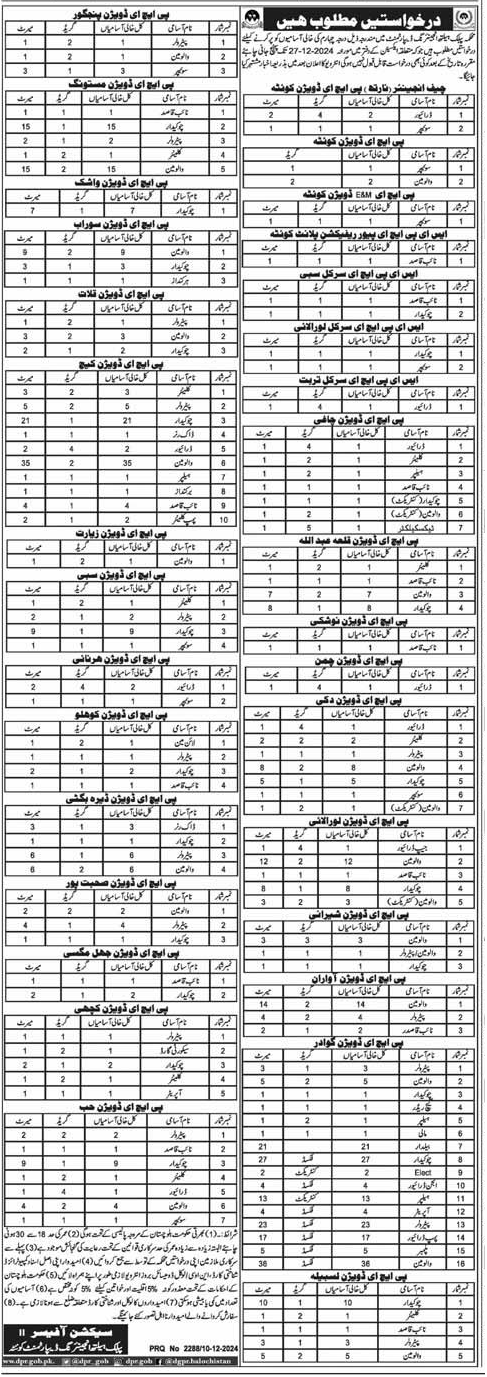 درخواستیں مطلوب ھیں
محکمہ پبلک ہیلتھ انجینئرنگ ڈیپارٹمنٹ میں مندرجہ ذیل درجہ چہارم کی خالی آسامیوں کو پر کرنے کیلئے
درخواستیں مطلوب ہیں جو کہ متعلقہ ایکسین کے دفتر میں مورخہ 27-12-2024 تک پہنچ جانی چاہئے
مقررہ تاریخ کے بعد کوئی بھی درخواست قابل قبول نہیں ہوگی انٹرویو کا اعلان بعد میں بذریعہ اخبار مشتہر کیا
جائیگا
چیف انجینئر (نارتھ) پی ایچ ای ڈویژن کوئٹہ
نمبر شمار نام آسامی کل خالی آسامیاں گریڈ میرٹ
1 ڈرائیور 2 4 2
2 سوئپر 1 1 1
پی ایچ ای ڈویژن کوئٹہ
نمبر شمار نام آسامی کل خالی آسامیاں گریڈ میرٹ
1 سوئپر 1 1 1
2 والومین 2 2 2
پی ایچ ای ڈویژن E&M کوئٹہ
نمبر شمار نام آسامی کل خالی آسامیاں گریڈ میرٹ
1 سوئپر 1 1 1
ایس ای پی ایچ ای پیور ریفیکشن پلانٹ کوئٹہ
نمبر شمار نام آسامی کل خالی آسامیاں گریڈ میرٹ
1 نائب قاصد 1 1 1
ایس ای پی ایچ ای سرکل سبی
نمبر شمار نام آسامی کل خالی آسامیاں گریڈ میرٹ
1 نائب قاصد 1 1 1
ایس ای پی ایچ ای سرکل لورالائی
نمبر شمار نام آسامی کل خالی آسامیاں گریڈ میرٹ
1 چوکیدار 1 1 1
2 نائب قاصد 1 1 1
ایس ای پی ایچ ای سرکل تربت
نمبر شمار نام آسامی کل خالی آسامیاں گریڈ میرٹ
1 ڈرائیور 1 4 1
پی ایچ ای ڈویژن چاغی
نمبر شمار نام آسامی کل خالی آسامیاں گریڈ میرٹ
1 ڈرائیور 1 4 1
2 کلینر 1 2 1
3 ہیلپر 1 2 1
4 نائب قاصد 1 1 1
5 چوکیدار (کنٹریکٹ) 1 1 1
6 والومین (کنٹریکٹ) 1 2 1
7 ٹیکس کلیکٹر 1 5 1
پی ایچ ای ڈویژن قلعہ عبد اللہ
نمبر شمار نام آسامی کل خالی آسامیاں گریڈ میرٹ
1 کلینر 1 2 1
2 نائب قاصد 1 1 1
3 والومین 7 2 7
4 چوکیدار 8 1 8
پی ایچ ای ڈویژن نوشکی
نمبر شمار نام آسامی کل خالی آسامیاں گریڈ میرٹ
1 سوئپر 1 1 1
پی ایچ ای ڈویژن چمن
نمبر شمار نام آسامی کل خالی آسامیاں گریڈ میرٹ
1 ڈرائیور 1 4 1
پی ایچ ای ڈویژن دکی
نمبر شمار نام آسامی کل خالی آسامیاں گریڈ میرٹ
1 ڈرائیور 1 4 1
2 کلینر 2 2 2
3 پیٹرولر 1 1 1
4 والومین 8 2 8
5 چوکیدار 5 1 5
6 سوئپر 1 1 1
7 والومین (کنٹریکٹ) 1 2 1
پی ایچ ای ڈویژن لورالائی
نمبر شمار نام آسامی کل خالی آسامیاں گریڈ میرٹ
1 جیپ ڈرائیور 1 4 1
2 والومین 12 2 12
3 نائب قاصد 1 1 1
4 چوکیدار 8 1 8
5 والومین (کنٹریکٹ) 3 2 3
پی ایچ ای ڈویژن شیرانی
نمبر شمار نام آسامی کل خالی آسامیاں گریڈ میرٹ
1 والومین 3 3 3
2 والومین / پیٹرولر 1 1 1
3 چوکیدار 1 1 1
پی ایچ ای ڈویژن آواران
نمبر شمار نام آسامی کل خالی آسامیاں گریڈ میرٹ
1 والومین 14 2 14
2 پیٹرولر 4 2 4
3 نائب قاصد 2 1 2
پی ایچ ای ڈویژن گوادر
نمبر شمار نام آسامی کل خالی آسامیاں گریڈ میرٹ
1 پیٹرولر 3 1 3
2 والومین 5 2 5
3 چوکیدار 1 1 1
4 گیج ریڈر 1 1 1
5 ہیلپر 1 2 1
6 مالی 1 1 1
7 بیلدار 21 21
8 چوکیدار 27 فکسڈ 27
9 Elect 2 کنٹریکٹ 2
10 انجن ڈرائیور 4 فکسڈ 4
11 ہیلپر 13 کنٹریکٹ 13
12 آپریٹر 4 فکسڈ 4
13 پیٹرولر 23 فکسڈ 23
14 پمپ ڈرائیور 17 فکسڈ 17
15 پلمبر 5 فکسڈ 5
16 والومین 38 فکسڈ 38
پی ایچ ای ڈویژن لسبیلہ
نمبر شمار نام آسامی کل خالی آسامیاں گریڈ میرٹ
1 چوکیدار 10 1 10
2 کلینر 1 1 1
3 پیٹرولر 1 1 1
4 نائب قاصد 1 1 1
5 والومین 5 2 5
پی ایچ ای ڈویژن پنجگور
نمبر شمار نام آسامی کل خالی آسامیاں گریڈ میرٹ
1 پیٹرولر 1 2 1
3 سوئپر 1 1 3
پی ایچ ای ڈویژن مستونگ
نمبر شمار نام آسامی کل خالی آسامیاں گریڈ میرٹ
1 نائب قاصد 1 1 1
2 چوکیدار 15 1 15
3 پیٹرولر 2 1 2
4 کلینر 1 2 1
5 والومین 15 2 15
پی ایچ ای ڈویژن واشک
نمبر شمار نام آسامی کل خالی آسامیاں گریڈ میرٹ
1 چوکیدار 7 1 7
پی ایچ ای ڈویژن سوراب
نمبر شمار نام آسامی کل خالی آسامیاں گریڈ میرٹ
1 والومین 9 2 9
2 چوکیدار 3 1 3
3 برکنداز 1 1 1
پی ایچ ای ڈویژن قلات
نمبر شمار نام آسامی کل خالی آسامیاں گریڈ میرٹ
1 پیٹرولر 1 2 1
2 والومین 3 2 3
3 چوکیدار 2 1 2
پی ایچ ای ڈویژن کیچ
نمبر شمار نام آسامی کل خالی آسامیاں گریڈ میرٹ
1 کلینر 3 2 3
2 پیٹرولر 5 2 5
3 چوکیدار 21 1 21
4 ڈاک رنر 1 1 1
5 ڈرائیور 2 4 2
6 والومین 35 2 35
7 ہیلپر 1 1 1
8 برکنداز 1 1 1
9 نائب قاصد 4 1 4
10 پمپ کلینر 2 1 2
پی ایچ ای ڈویژن زیارت
نمبر شمار نام آسامی کل خالی آسامیاں گریڈ میرٹ
1 والومین 1 2 1
پی ایچ ای ڈویژن سبی
نمبر شمار نام آسامی کل خالی آسامیاں گریڈ میرٹ
1 کلینر 1 2 1
2 پیٹرولر 1 1 1
3 چوکیدار 9 1 9
4 سوئپر 1 1 1
پی ایچ ای ڈویژن ھرنائی
نمبر شمار نام آسامی کل خالی آسامیاں گریڈ میرٹ
1 ڈرائیور 2 4 2
2 سوئپر 1 1 1
پی ایچ ای ڈویژن کوھلو
نمبر شمار نام آسامی کل خالی آسامیاں گریڈ میرٹ
1 لائن مین 1 2 1
2 پیٹرولر 1 1 1
3 چوکیدار 2 1 2
4 نائب قاصد 1 1 1
پی ایچ ای ڈویژن ڈیرہ بگٹی
نمبر شمار نام آسامی کل خالی آسامیاں گریڈ میرٹ
1 ڈاک رنر 3 1 3
2 چوکیدار 1 1 1
3 پیٹرولر 6 1 6
4 والومین 6 2 6
پی ایچ ای ڈویژن صحبت پور
نمبر شمار نام آسامی کل خالی آسامیاں گریڈ میرٹ
1 والومین 2 2 2
2 پیٹرولر 4 1 4
3 چوکیدار 1 1 1
پی ایچ ای ڈویژن جھل مگسی
نمبر شمار نام آسامی کل خالی آسامیاں گریڈ میرٹ
1 نائب قاصد 1 1 1
2 چوکیدار 2 1 2
پی ایچ ای ڈویژن کچھی
نمبر شمار نام آسامی کل خالی آسامیاں گریڈ میرٹ
1 پیٹرولر 1 1 1
2 سیکورٹی گارڈ 1 2 1
3 چوکیدار 2 1 2
4 کلینر 1 2 1
5 آپریٹر 1 1 1
پی ایچ ای ڈویژن حب
نمبر شمار نام آسامی کل خالی آسامیاں گریڈ میرٹ
1 پیٹرولر 2 2 2
2 نائب قاصد 1 1 1
3 چوکیدار 9 1 9
4 سوئپر 1 1 1
5 ڈرائیور 1 4 1
6 والومین 1 2 1
7 کلینر 1 1 1
شرائط: (1) بھرتی حکومت بلوچستان کے مروجہ پالیسی کے تحت ہوگی (2) عمر کی حد 18 سے 30 ہونی
چاہئے البتہ زیادہ سے زیادہ عمر کی حد سرکاری قوانین کے تحت رعایت کی گنجائش موجود ہے (3) پہلے سے
سرکاری ملازمین اپنی درخواستیں محکمہ کے توسط سے جمع کروائیں (4) امیدوار اپنی اصل اسناد کمپیوٹرائزڈ
شناختی کارڈ
سیکشن آفیسر II
پبلک ہیلتھ انجینئرنگ ڈیپارٹمنٹ کوئٹہ
PRQ No 2288/10-12-2024
www.dpr.gob.pk dpr_gob dpr.gob.pk @dgpr.balochistan